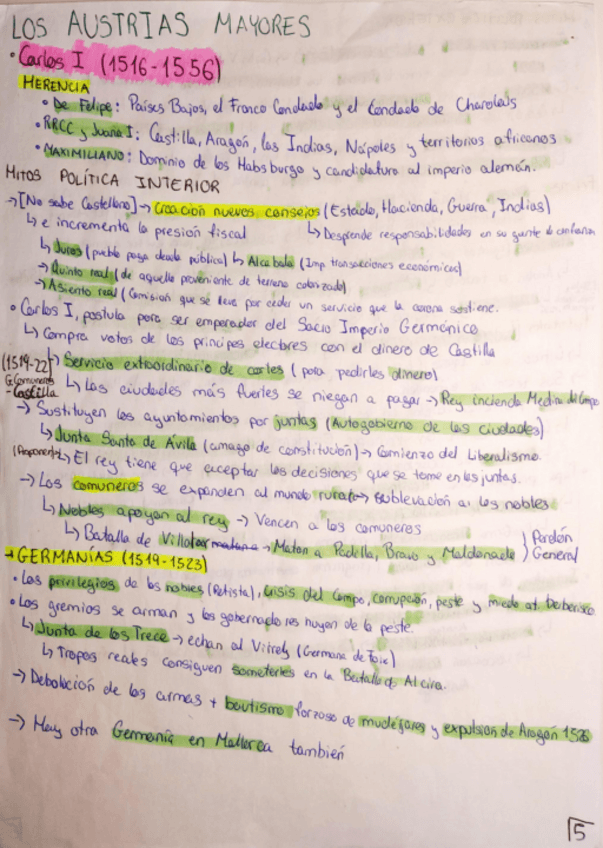 LOS AUSTRIAS MAYORES
• Carlos I (1516-1556)
HERENCIA
• De Felipe: Países Bajos, el Franco Condado y el Condado de Charolais
• RRCC y Juana I: Castilla, Aragón, las Indias, Nápoles y territorios africanos
• MAXIMILIANO: Dominio de los Habsburgo y candidatura al imperio alemán.
Hitos POLÍTICA INTERIOR
→ [No sabe Castellano] → Creación nuevos consejos (Estado, Hacienda, Guerra, Indias)
↳ e incrementa la presión fiscal ↳ Desprende responsabilidades en su gente de confianza
↳ Juros (pueblo paga deuda pública) ↳ Alcabala (Imp. transacciones económicas)
→ Quinto real (de aquello proveniente de terreno colonizado)
→ Asiento real (Comisión que se lleva por ceder un servicio que la corona sostiene.
• Carlos I, postula para ser emperador del Sacro Imperio Germánico
↳ Compra votos de los príncipes electores con el dinero de Castilla
(1519-22) ↳ Servicio extraordinario de cortes (para pedirles dinero)
G. Comuneros ↳ Las ciudades más fuertes se niegan a pagar → Rey incienda Medina del Campo
- Castilla
→ Sustituyen los ayuntamientos por juntas (Autogobierno de las ciudades)
↳ Junta Santa de Ávila (amago de constitución) → Comienzo del Liberalismo.
(Proponente) ↳ El rey tiene que aceptar las decisiones que se tome en las juntas.
→ Los comuneros se expanden al mundo rural → sublevación a los nobles
↳ Nobles apoyan al rey → Vencen a los comuneros
↳ Batalla de Villalar → Matan a Padilla, Bravo y Maldonado } Perdón General
→ GERMANÍAS (1519-1523)
• Los privilegios de los nobles (Petista), crisis del campo, corrupción, peste y miedo at. Berberisco
• Los gremios se arman y los gobernadores huyen de la peste.
↳ Junta de los Trece → echan al Virrey (Germana de Foix)
↳ Tropas reales consiguen someterles en la Batalla de Alcira.
→ Debolución de las armas + bautismo forzoso de mudéjares y expulsión de Aragón 1526
→ Hay otra Germanía en Mallorca también
5